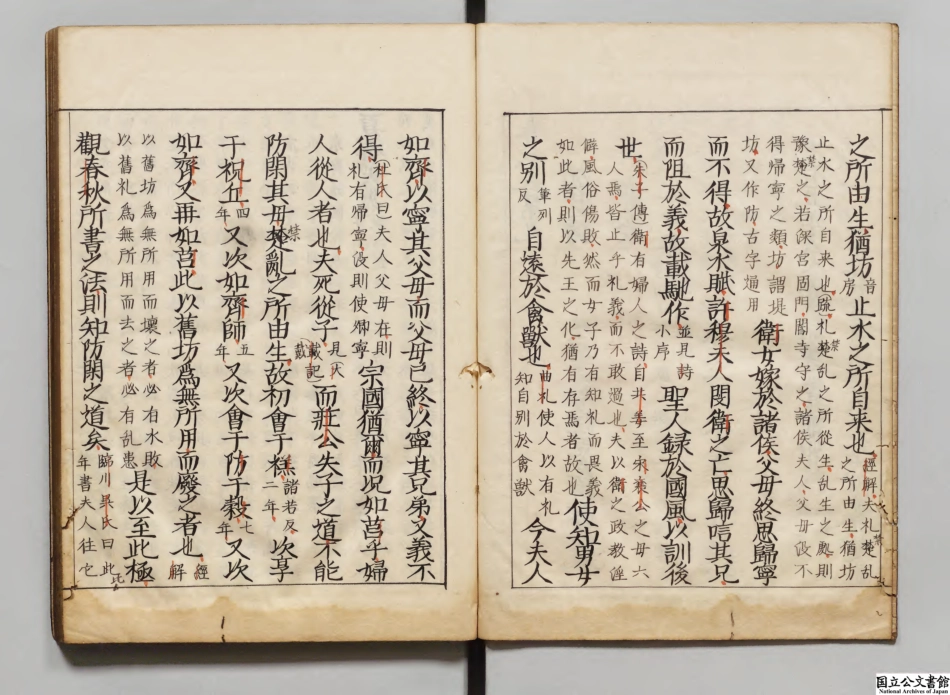 之所由生猶坊音房止水之所自来也經解夫礼楚乱之所由生猶坊
止水之所自来也疏礼楚乱之所從生乱生之處則
豫楚之若深宮固門閽寺守之諸侯夫人父母没不
得帰寧之類坊謂堤坊又作防古字通用衛女嫁於諸侯父母終思歸寧
而不得故泉水賦許穆夫人閔衛之亡思歸唁其兄
而阻於義故載馳作並見詩小序聖人録於國風以訓後
世朱子傳衛有婦人之詩自共姜至宋桓公之母六人焉皆止乎礼義而不敢過也夫以衛之政教淫
僻風俗傷敗然而女子乃有知礼而畏義如此者則以先王之化猶有存焉者故也使知男女
之別筆列反自遠於禽獣也曲礼使人以有礼知自別於禽獣今夫人
如齊以寧其父母而父母已終以寧其兄弟又義不
得杜氏曰夫人父母在則礼有帰寧没則使卿寧宗國猶爾而况如莒乎婦
人從人者也夫死從子見戴記而莊公失子之道不能
防閑其母楚亂之所由生故初會于禚諸若反二年次享
于祝丘四年又次如齊師五年又次會于防于穀七年又次
如齊又再如莒此以舊坊為無所用而廢之者也經解
以舊坊為無所用而壊之者必有水敗以舊礼為無所用而去之者必有乱患是以至此極
觀春秋所書之法則知防閑之道矣臨川吳氏曰此年書夫人往它
国立公文書館
National Archives of Japan